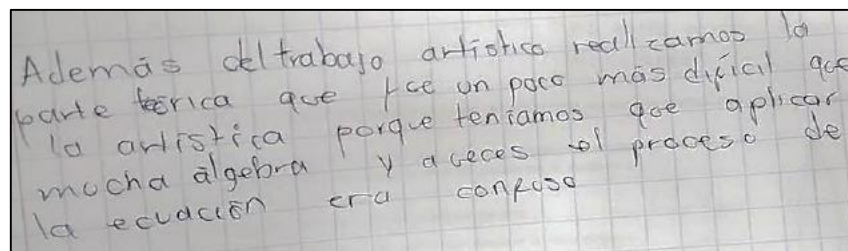 Además del trabajo artístico realizamos la
parte teórica que fue un poco más dificil que
la artística porque teníamos que aplicar
mucha álgebra y aveces el proceso de
la ecuación era confuso